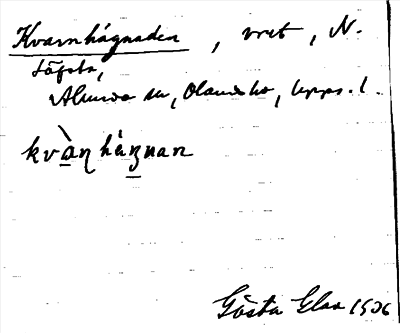 Kvarnhägnaden, vret, N.
Löfsta,
Almunge sn, Olands hd, Upps. l.
kvàṉ hägnan
Gösta Elas 1906